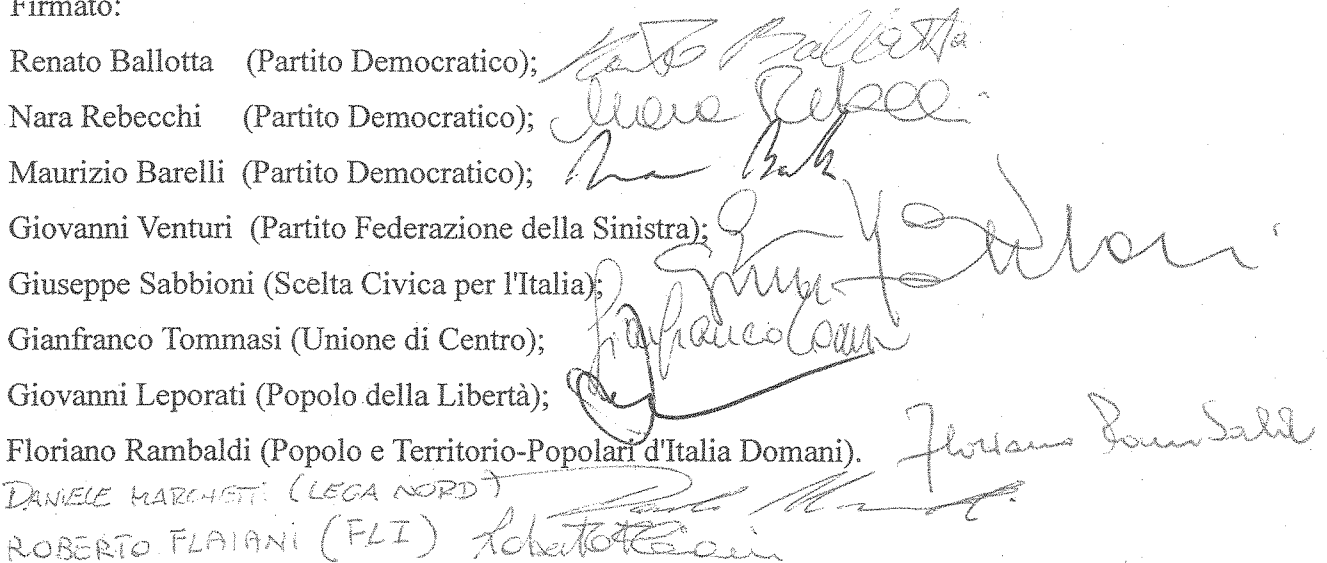 Firmato:
Renato Ballotta (Partito Democratico); Renato Ballotta
Nara Rebecchi (Partito Democratico); Nara Rebecchi
Maurizio Barelli (Partito Democratico);
Giovanni Venturi (Partito Federazione della Sinistra);
Giuseppe Sabbioni (Scelta Civica per l'Italia);
Gianfranco Tommasi (Unione di Centro); Gianfranco
Giovanni Leporati (Popolo della Libertà);
Floriano Rambaldi (Popolo e Territorio-Popolari d'Italia Domani). Floriano Rambaldi
DANIELE MARCHETTI (LEGA NORD)
ROBERTO FLAIANI (FLI) Roberto Flaiani